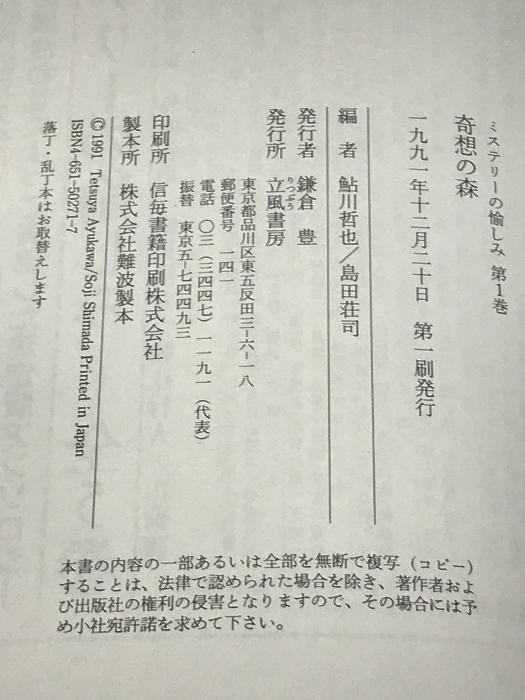 ミステリーの愉しみ 第1巻
奇想の森
一九九一年十二月二十日 第一刷発行
編者 鮎川哲也/島田荘司
発行者 鎌倉 豊
発行所 立風書房
りっぷう
東京都品川区東五反田三-六-一八
郵便番号 一四一
電話 〇三(三四四七)一一九一(代表)
振替 東京五-七四四九三
印刷所 信毎書籍印刷株式会社
製本所 株式会社難波製本
©1991 Tetsuya Ayukawa/Soji Shimada Printed in Japan
ISBN4-651-50271-7
落丁・乱丁本はお取替えします
本書の内容の一部あるいは全部を無断で複写(コピー)
することは、法律で認められた場合を除き、著作者およ
び出版社の権利の侵害となりますので、その場合には予
め小社宛許諾を求めて下さい。